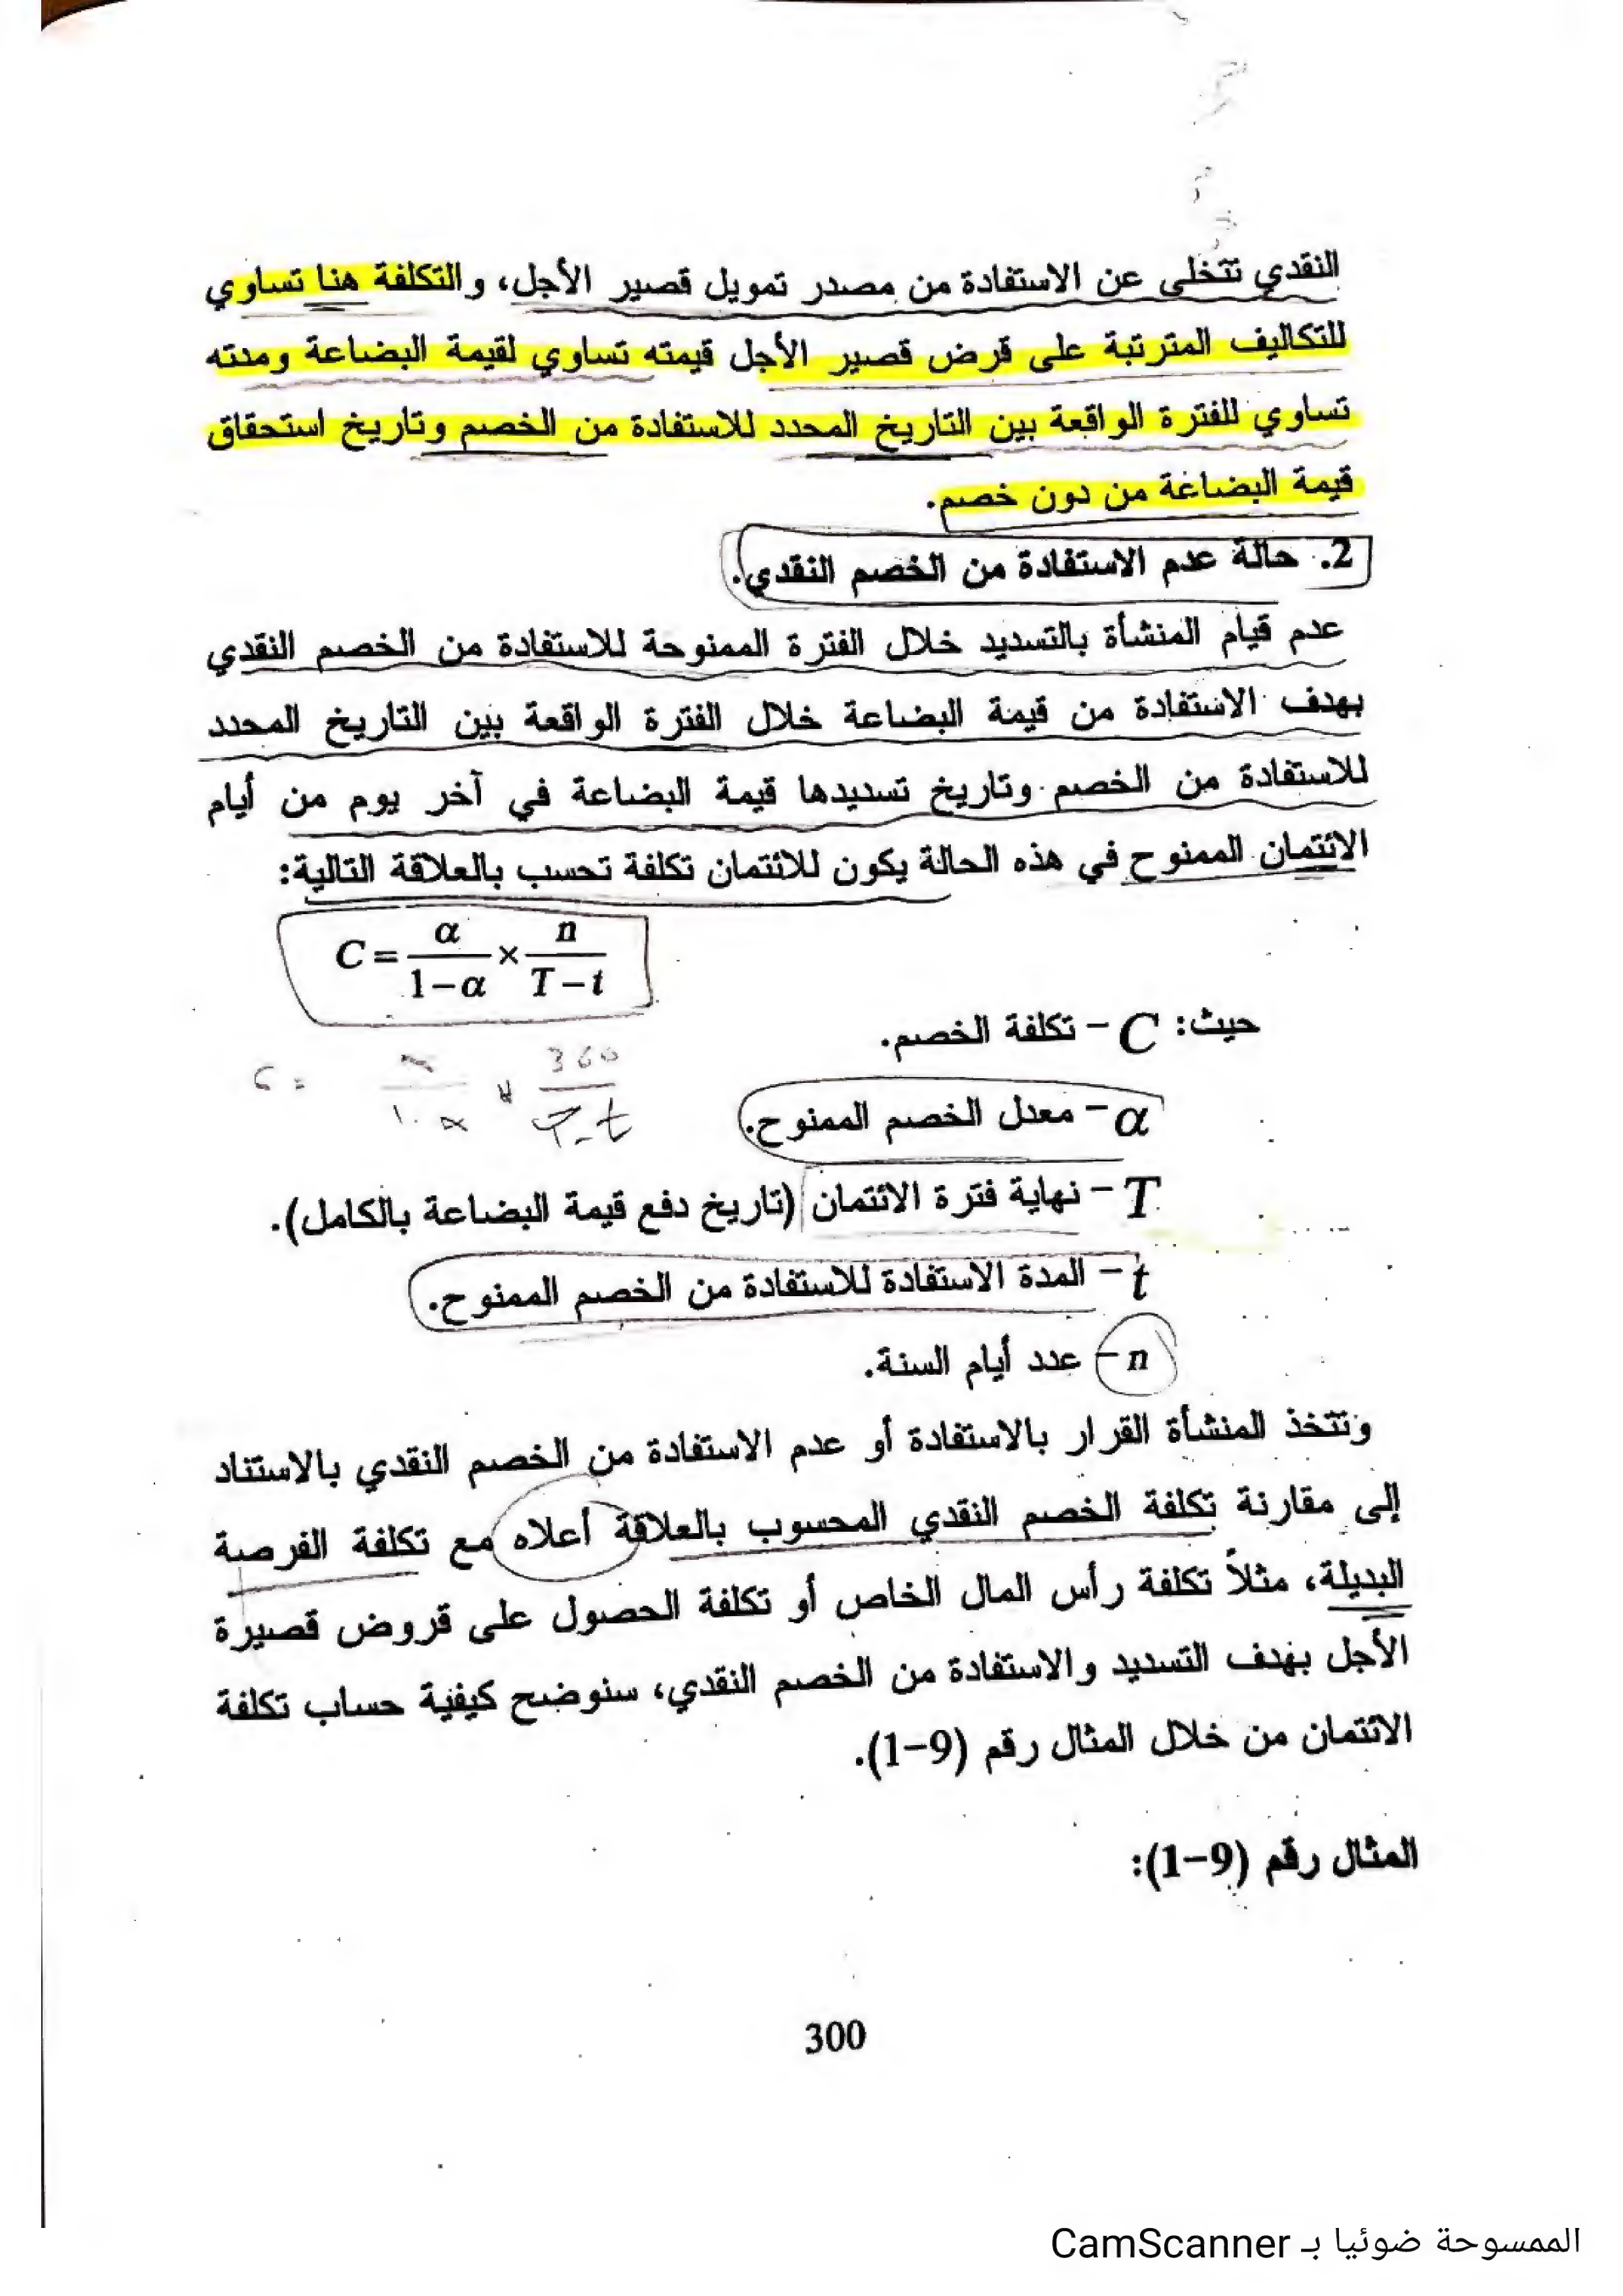 النقدي تتخلى عن الاستفادة من مصدر تمويل قصير الأجل، والتكلفة هنا تساوي
للتكاليف المترتبة على قرض قصير الأجل قيمته تساوي لقيمة البضاعة ومدته
تساوي للفترة الواقعة بين التاريخ المحدد للاستفادة من الخصم وتاريخ استحقاق
قيمة البضاعة من دون خصم.
2. حالة عدم الاستفادة من الخصم النقدي.
عدم قيام المنشأة بالتسديد خلال الفترة الممنوحة للاستفادة من الخصم النقدي
بهدف الاستفادة من قيمة البضاعة خلال الفترة الواقعة بين التاريخ المحدد
للاستفادة من الخصم وتاريخ تسديدها قيمة البضاعة في آخر يوم من أيام
الائتمان الممنوح في هذه الحالة يكون للائتمان تكلفة تحسب بالعلاقة التالية:
C = α/(1−α) × n/(T−t)
حيث: C – تكلفة الخصم.
C = α/(1-α) × 360/(T-t)
α – معدل الخصم الممنوح.
T – نهاية فترة الائتمان (تاريخ دفع قيمة البضاعة بالكامل).
t – المدة الاستفادة للاستفادة من الخصم الممنوح.
n – عدد أيام السنة.
وتتخذ المنشأة القرار بالاستفادة أو عدم الاستفادة من الخصم النقدي بالاستناد
إلى مقارنة تكلفة الخصم النقدي المحسوب بالعلاقة أعلاه مع تكلفة الفرصة
البديلة، مثلاً تكلفة رأس المال الخاص أو تكلفة الحصول على قروض قصيرة
الأجل بهدف التسديد والاستفادة من الخصم النقدي، سنوضح كيفية حساب تكلفة
الائتمان من خلال المثال رقم (9-1).
المثال رقم (9-1):
300
الممسوحة ضوئيا بـ CamScanner